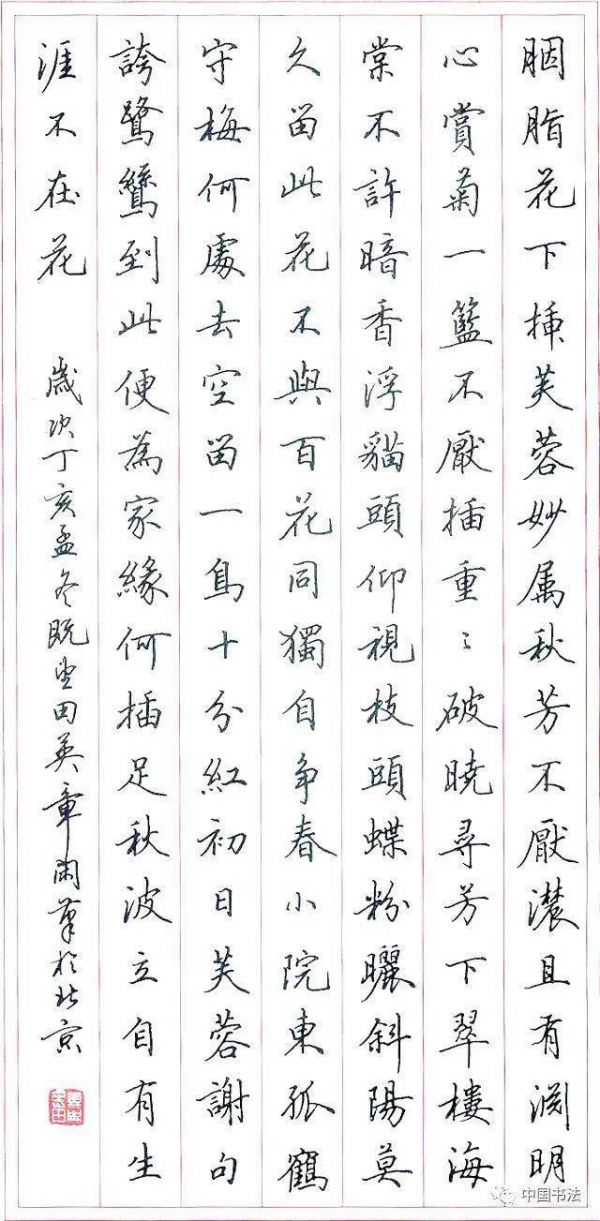 胭脂花下挿芙蓉妙属秋芳不厭濃且有渊明
心賞菊一籃不厭插重〻破曉尋芳下翠樓海
棠不許暗香浮貓頭仰視枝頭蝶粉曬斜陽莫
久留此花不與百花同獨自争春小院東孤鶴
守梅何處去空留一鳥十分紅初日芙蓉謝句
誇鷺鷥到此便為家緣何插足秋波立自有生
涯不在花 歲次丁亥孟冬既望田英章閑筆於北京
中国书法